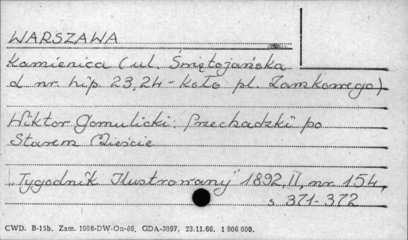 WARSZAWA
Kamienica (ul. Świętojańska
d nr. hip. 23,24 - koło pl. Zamkowego)
Wiktor Gomulicki: Przechadzki po
Starem Mieście
„Tygodnik Ilustrowany" 1892, II, nr. 154,
s. 371-372
CWD. B-15b. Zam. 1008-DW-On-66, GDA-3097. 23.11.66. 1 000 000.